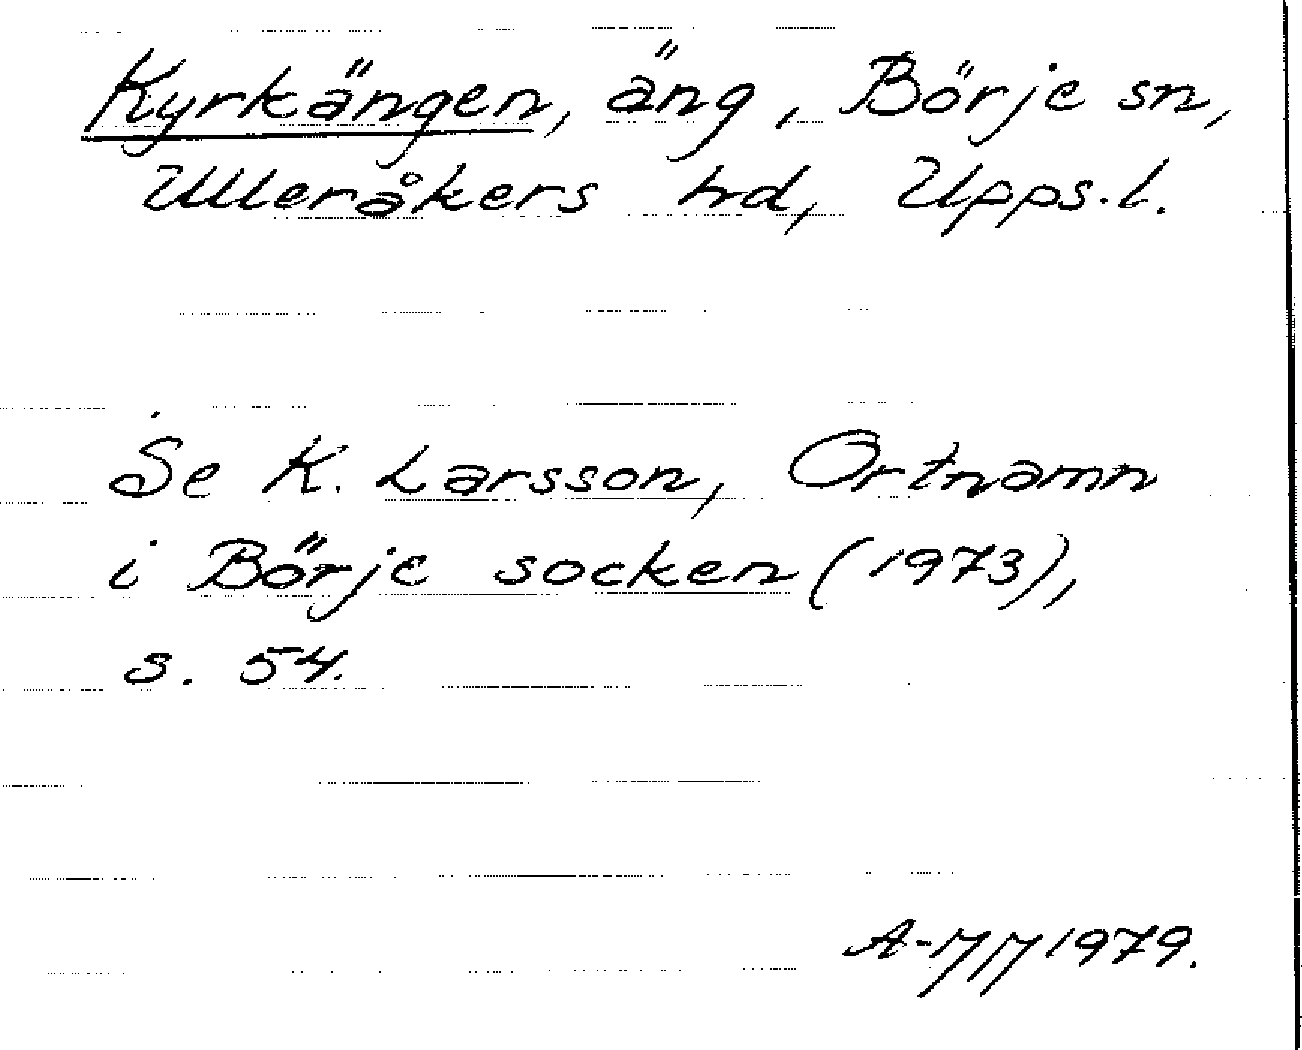 Kyrkängen, äng, Börje sn,
Ulleråkers hd, Upps.l.
Se K. Larsson, Ortnamn
i Börje socken (1973),
s. 54.
1979.